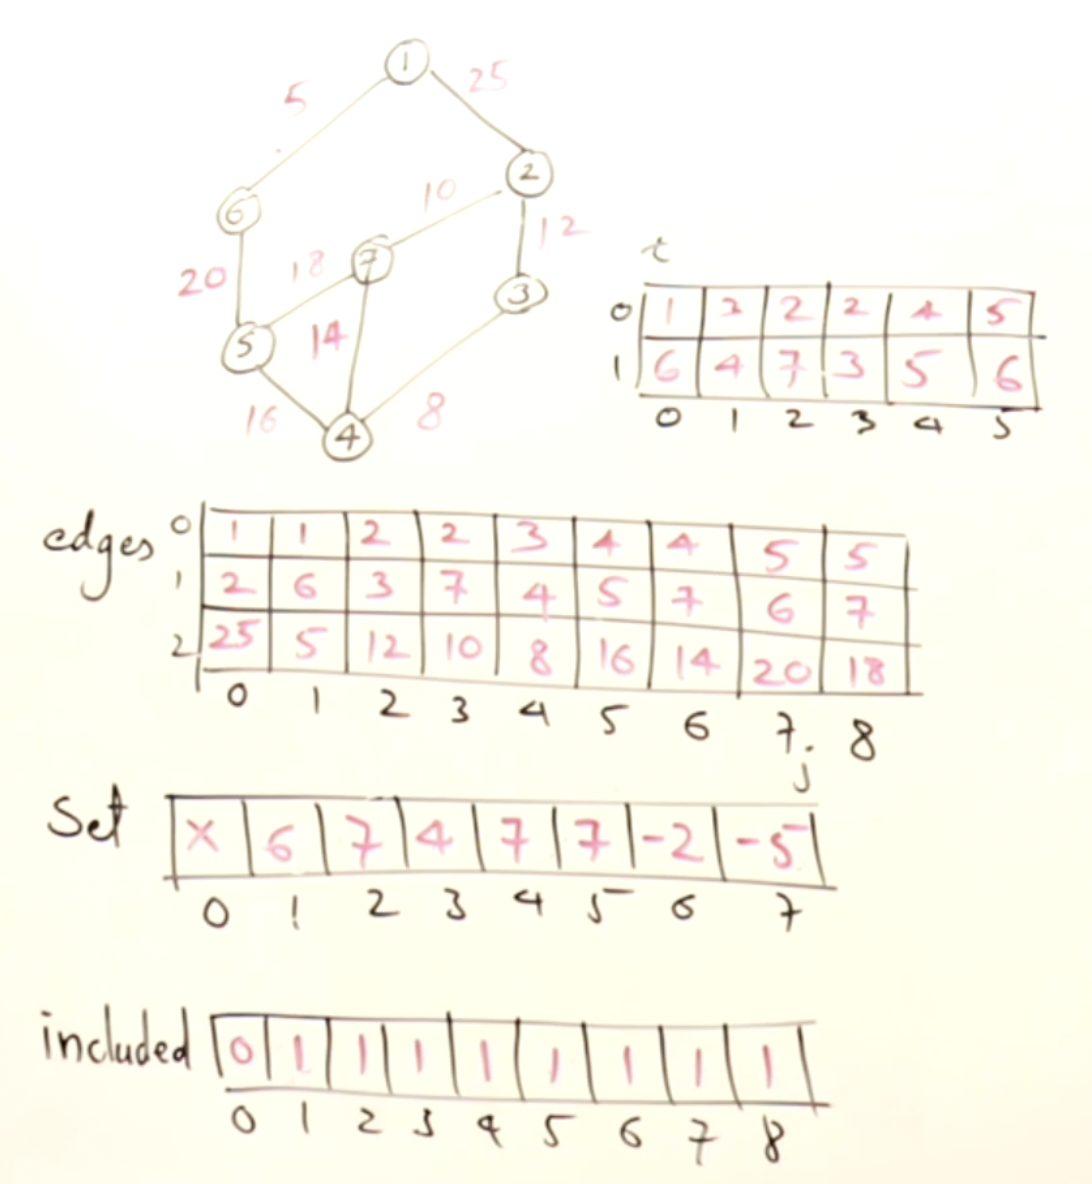 1
5 25
2
6 10
12
7
20 18 3
5 14
16 8
4
t
0 1 3 2 2 4 5
1 6 4 7 3 5 6
0 1 2 3 4 5
edges 0 1 1 2 2 3 4 4 5 5
1 2 6 3 7 4 5 7 6 7
2 25 5 12 10 8 16 14 20 18
0 1 2 3 4 5 6 7 8
j
Set X 6 7 4 7 7 -2 -5
0 1 2 3 4 5 6 7
included 0 1 1 1 1 1 1 1 1
0 1 2 3 4 5 6 7 8